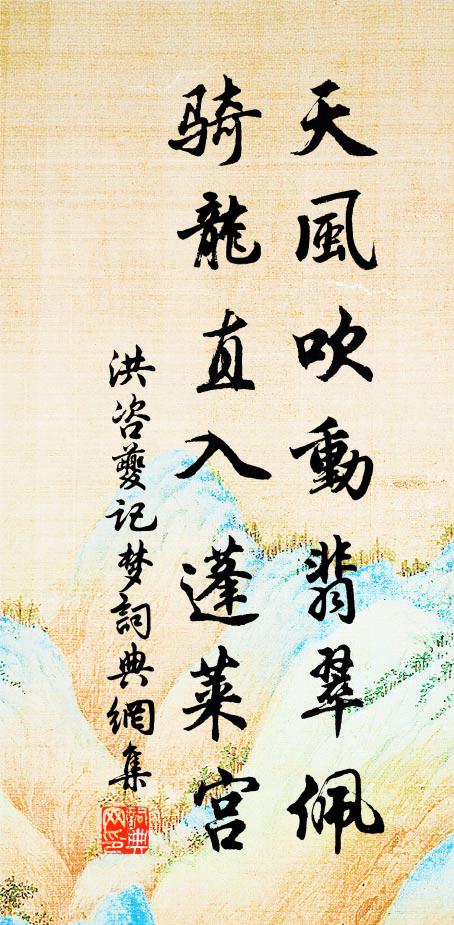 天風吹動翡翠佩
騎龍直入蓬萊宮
洪咨夔记梦詞典網集
詞典网印